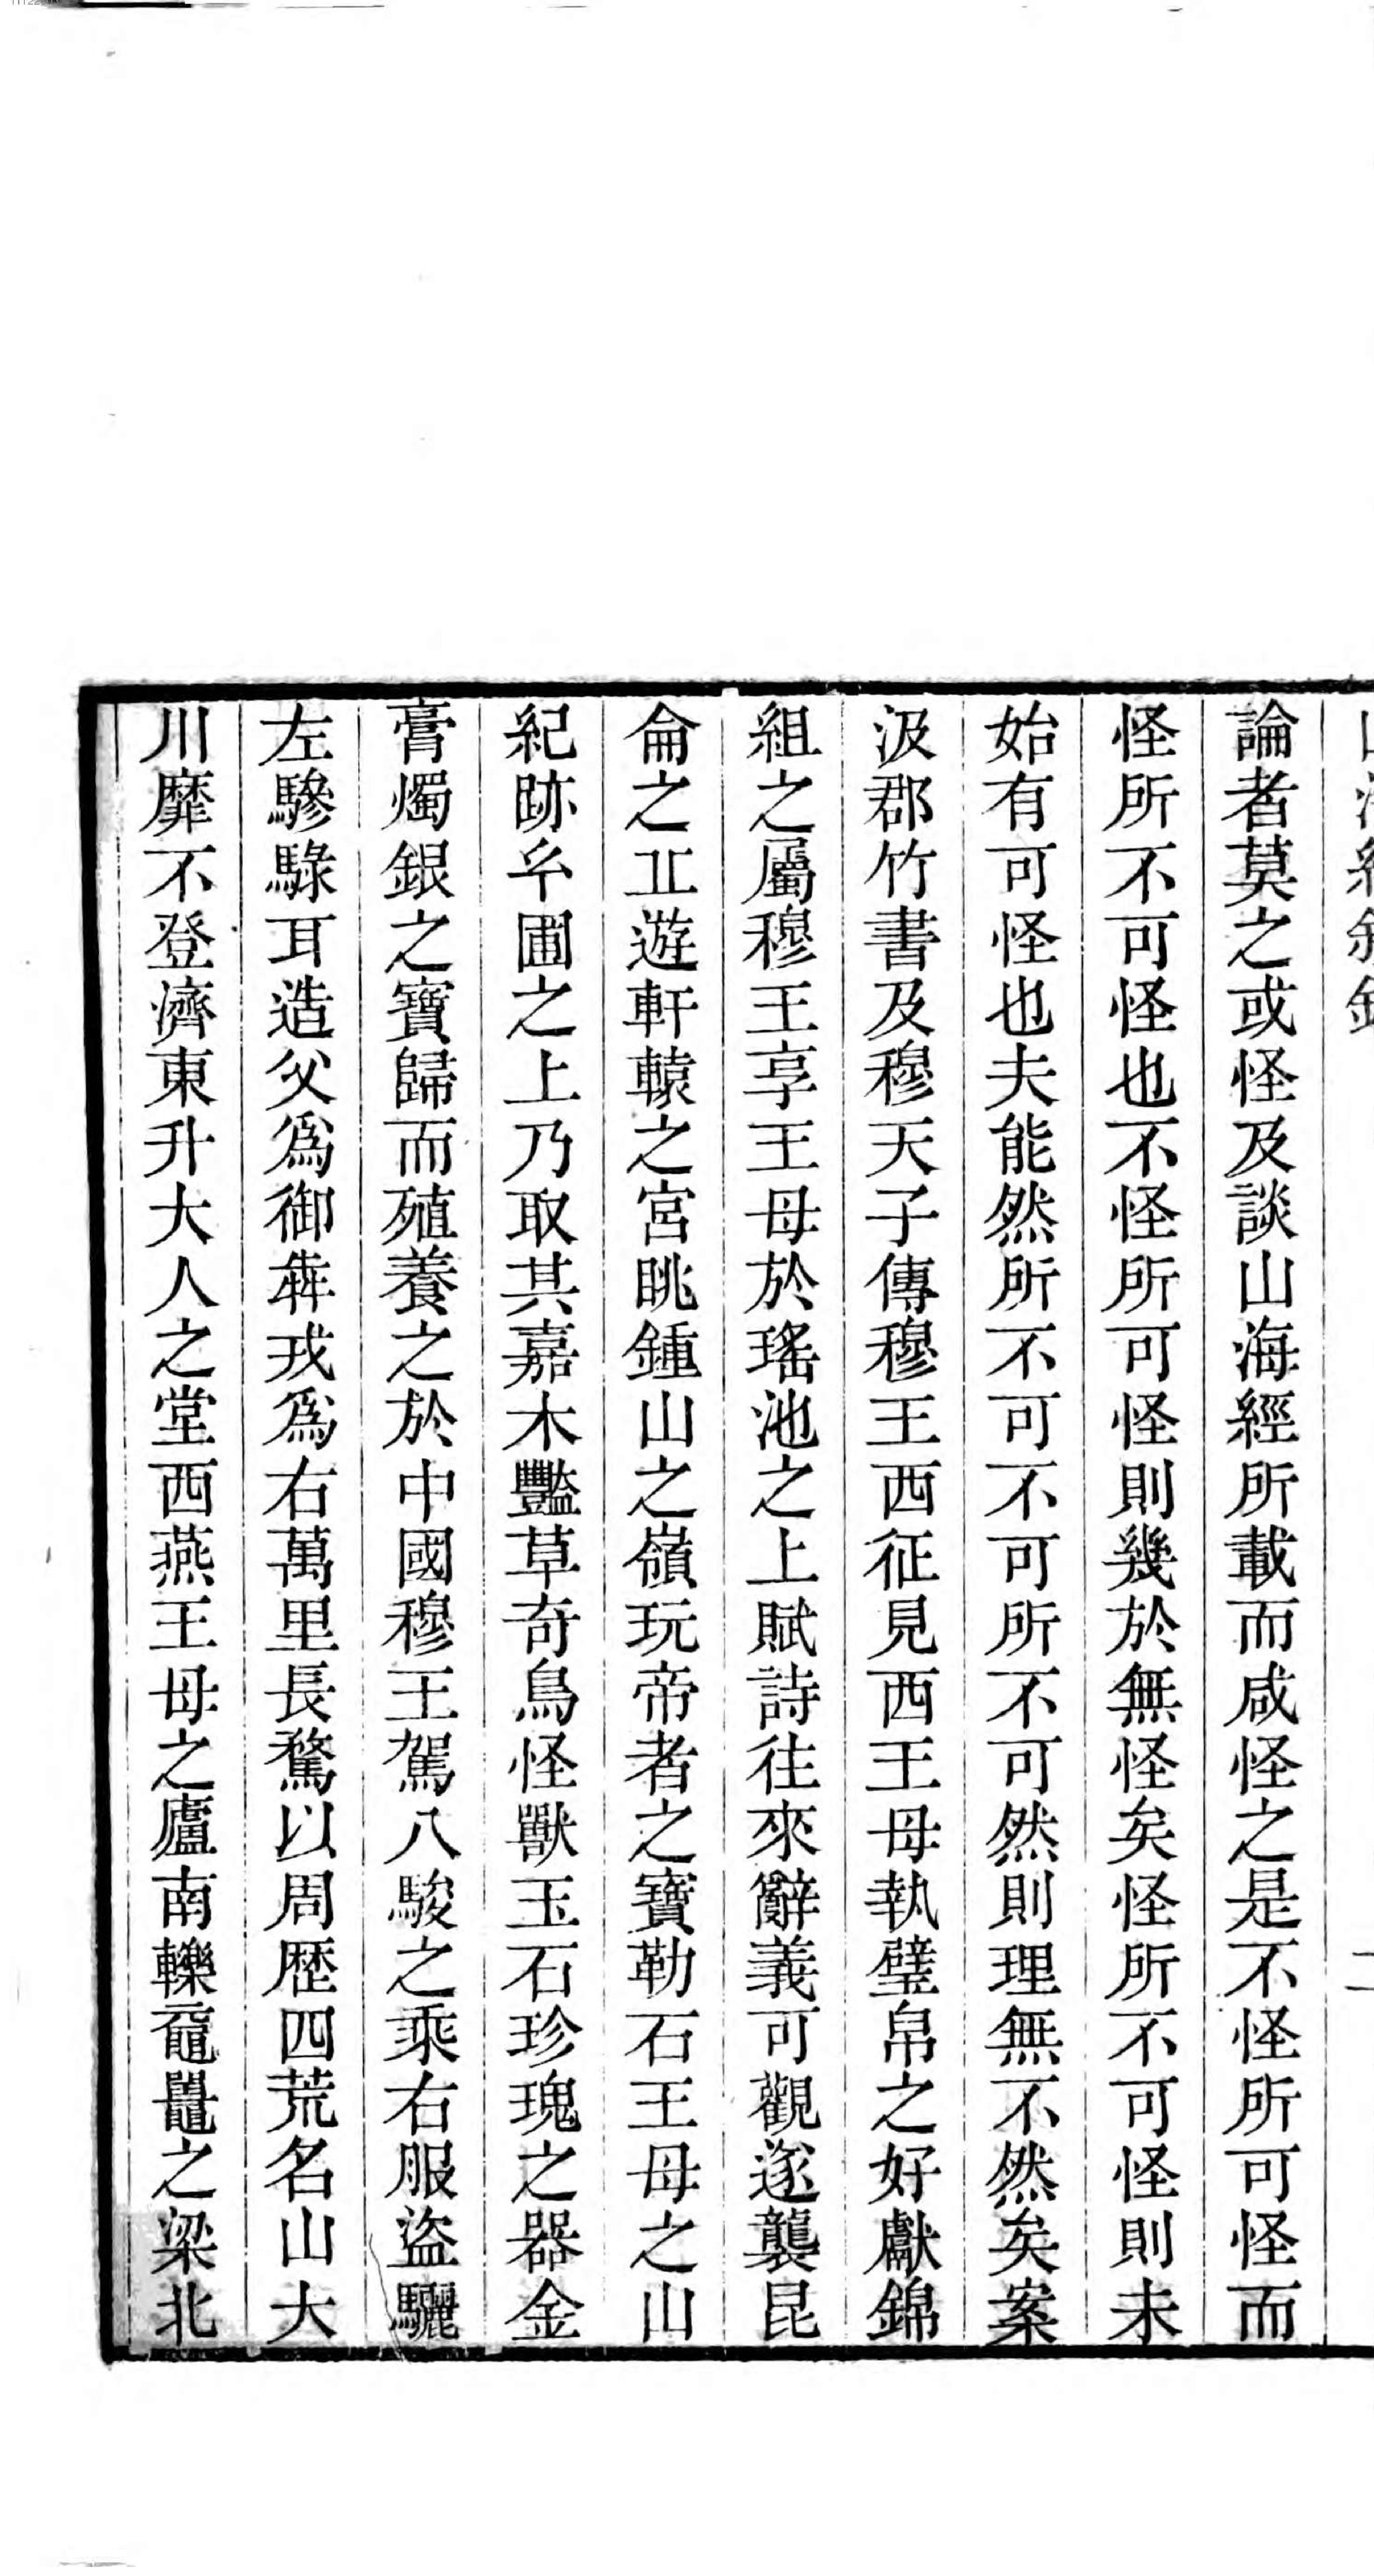 論者莫之或怪及談山海經所載而咸怪之是不怪所可怪而
怪所不可怪也不怪所可怪則幾於無怪矣怪所不可怪則未
始有可怪也夫能然所不可不可所不可然則理無不然矣案
汲郡竹書及穆天子傳穆王西征見西王母執璧帛之好獻錦
組之屬穆王享王母於瑤池之上賦詩往來辭義可觀遂襲昆
侖之丠遊軒轅之宮眺鍾山之嶺玩帝者之寶勒石王母之山
紀跡玄圃之上乃取其嘉木豔草奇鳥怪獸玉石珍瑰之器金
膏燭銀之寶歸而殖養之於中國穆王駕八駿之乘右服盜驪
左驂騄耳造父為御犇戎為右萬里長騖以周歷四荒名山大
川靡不登濟東升大人之堂西燕王母之廬南轢黿鼉之梁北